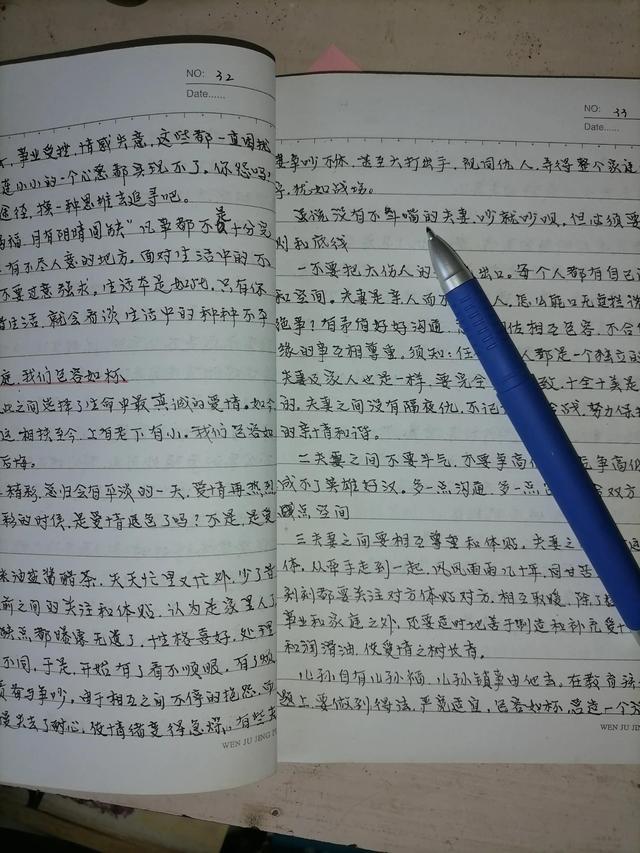 NO: 32
Date......
事业受挫,情感失意,这些都一直困扰
连小小的一个心愿都实现不了。你怨吗,
途径,换一种思维去追寻吧。
祸福,月有阴晴圆缺"凡事都不是十分完
有不尽人意的地方。面对生活中的不
不要过意强求,生活本是如此,只有你
生活,就会看淡生活中的种种不幸
庭,我们包容如杯
此之间选择了生命中最真诚的爱情。如今
这相扶至今,上有老下有小。我们包容如
后悔。
精彩,总归会有平淡的一天,爱情再热烈
彩的时候,是爱情褪色了吗?不是,是爱
米油盐酱醋茶,天天忙里又忙外,少了昔
前之间的关注和体贴,认为是家里人了
缺点都曝露无遗了,性格喜好,处理
不同,于是,开始有了看不顺眼,有了
责与争吵。由于相互之间不停的抱怨,而
失去了耐心,使情绪变得急燥,有些夫
WEN JU JING
NO: 33
Date......
妻争吵不休,甚至大打出手,视同仇人,弄得整个家庭
犹如战场。
要说没有不拌嘴的夫妻,吵就吵呗,但必须要
则和底线
一不要把太伤人的出口。每个人都有自己
和空间。夫妻是亲人而不人,怎么能口无遮拦说
绝事?有矛盾好好沟通,相互包容,不合
缘的事互相尊重。须知:任人都是一个独立的
夫妻及家人也是一样,要完全致,十全十美是
的。夫妻之间没有隔夜仇,不记努力保持
的亲情和谐。
二夫妻之间不要斗气,不要争高争高低
成不了英雄好汉。多一点沟通,多一点双方
点空间
三夫妻之间要相互尊重和体贴,夫妻之
体,从牵手走到一起,风风雨雨几十年,同甘苦
刻刻都要关注对方体贴对方,相互取暖,除了
事业和家庭之外,还要适时地善于制造和补充
和润滑油,使爱情之树长青。
儿孙自有儿孙福,儿孙锁事由他去,在教育
题上,要做到得法,严宽适宜,包容如杯,总是一个
WEN JU JIN